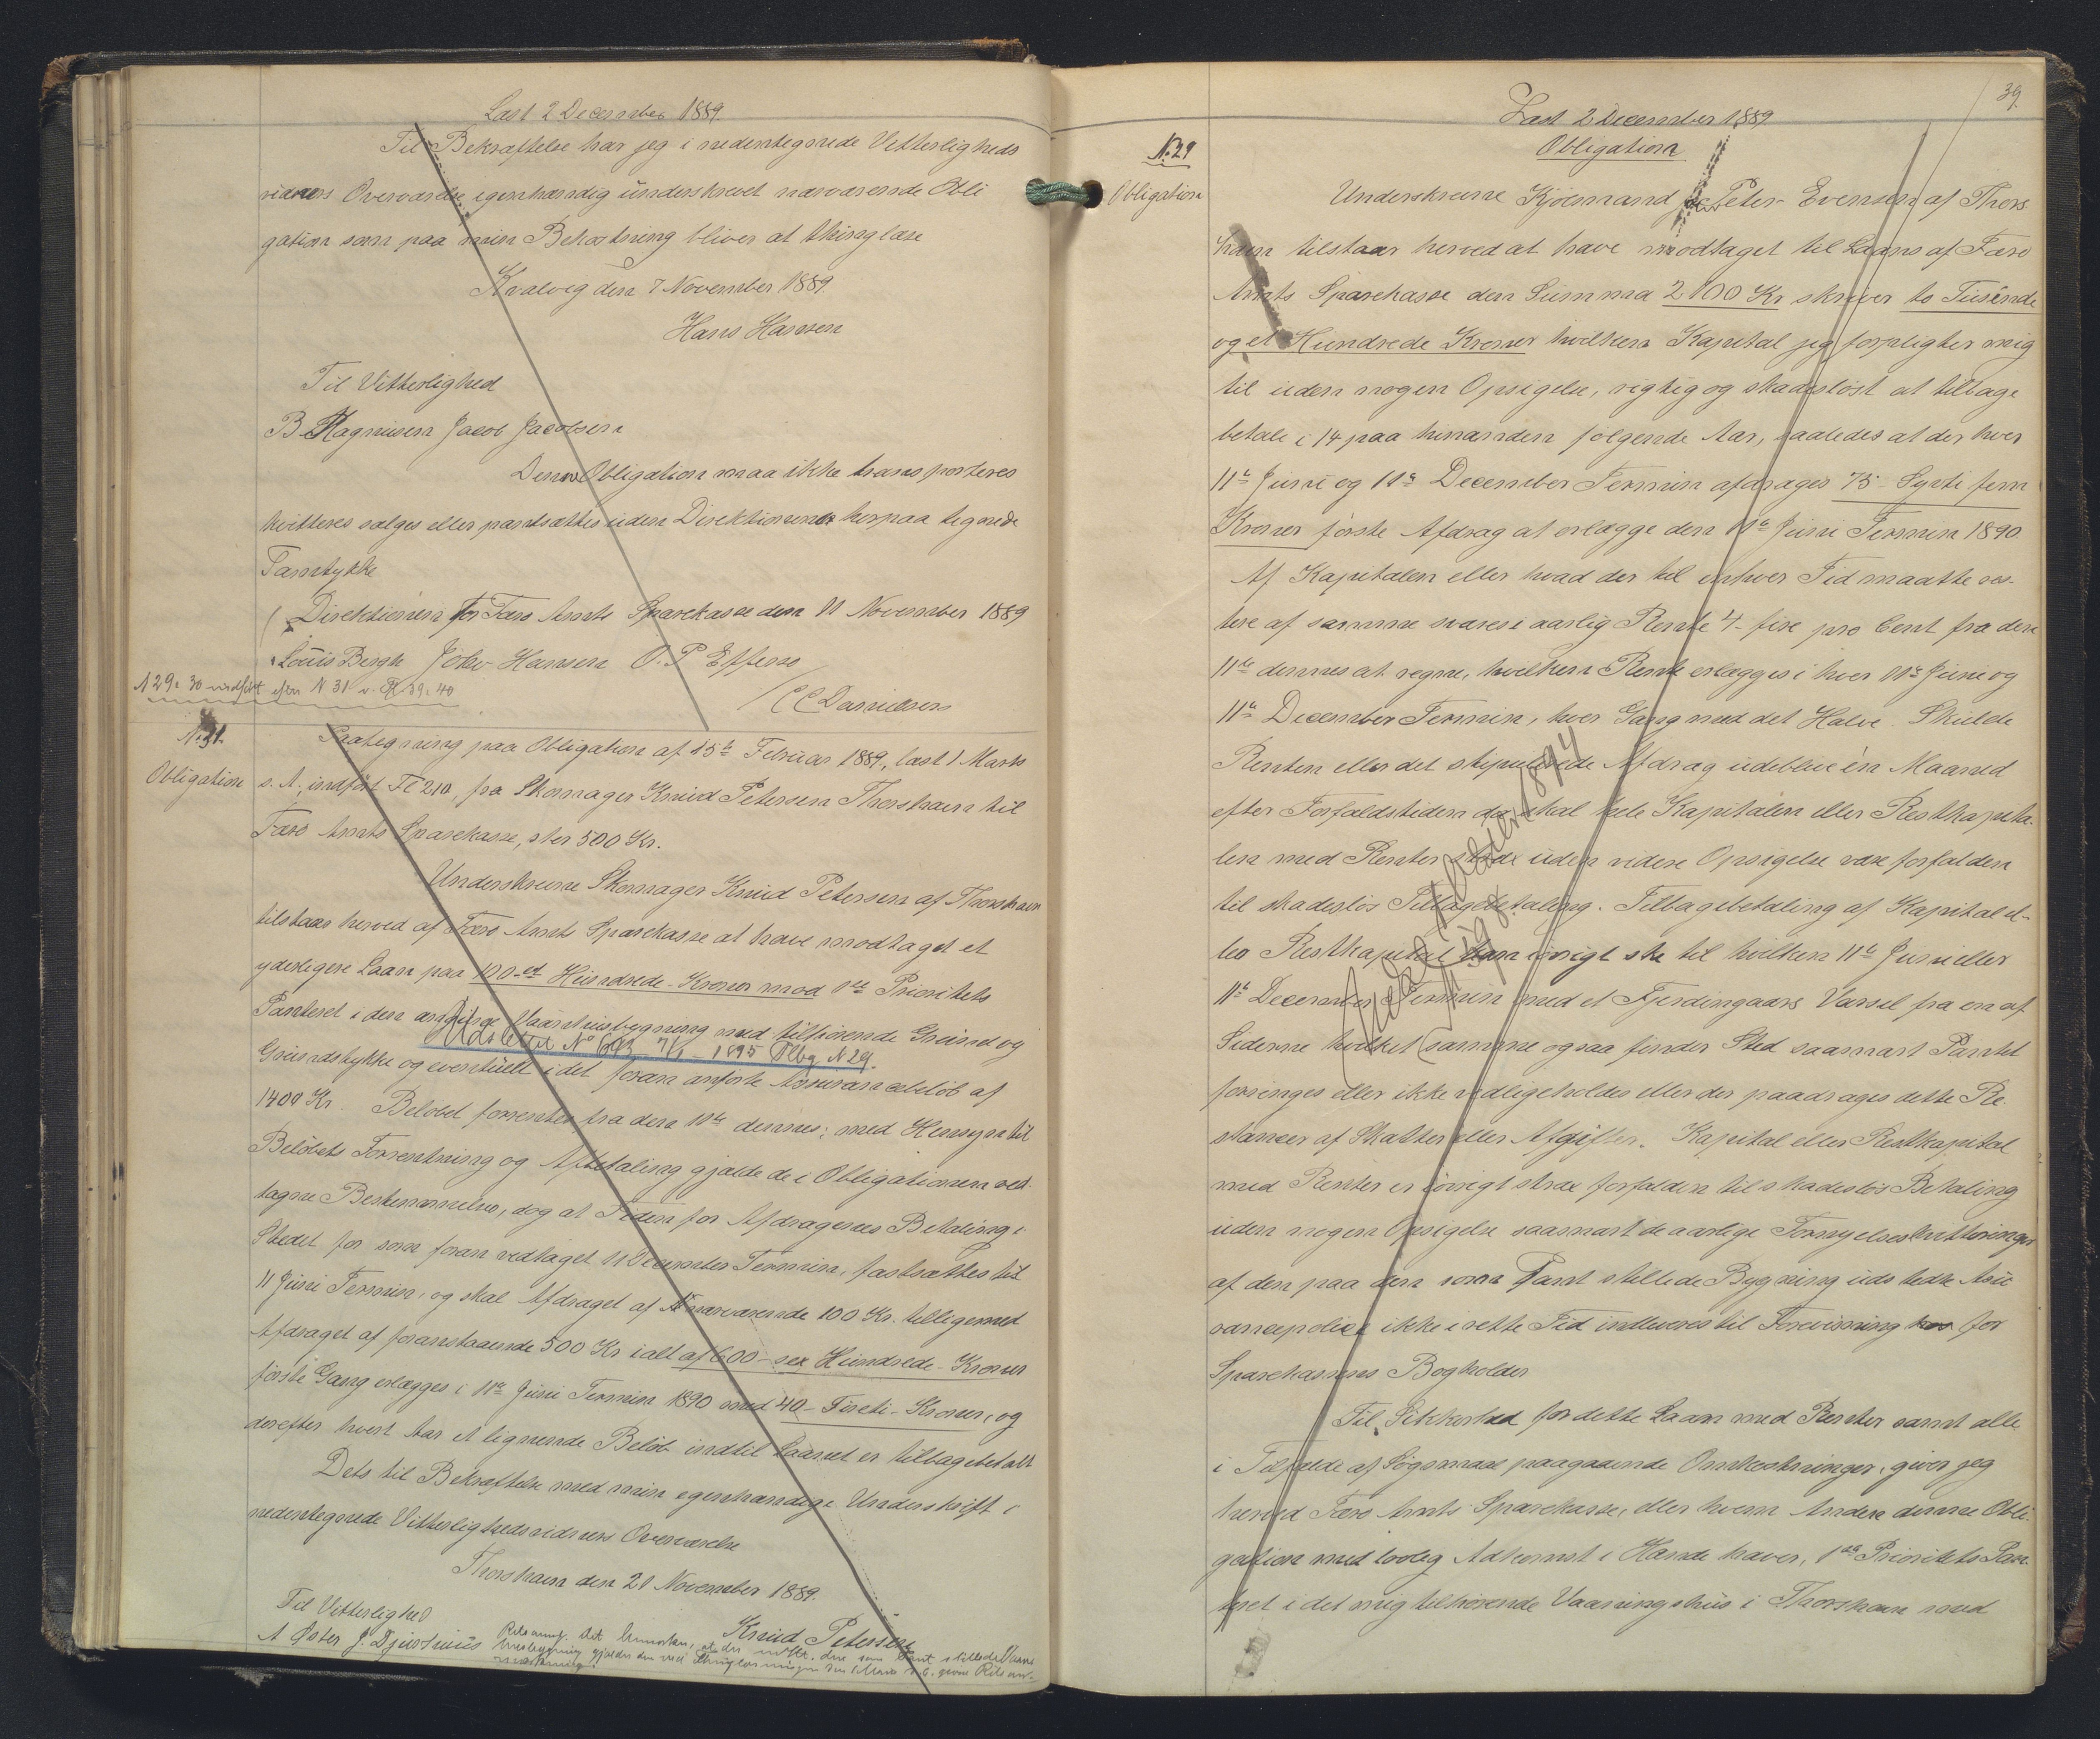 Læst 2 December 1889.
Til Bekræftelse har jeg i nedentegnede Vitterligheds
vidners Overværelse egenhændig underskrevet nærværende Obli
gation som paa min Bekostning bliver at thinglæse
Kvalvig den 7 November 1889.
Hans Hansen
Til Vitterlighed
B Magnusen Jacob Jacobsen
Denne Obligation maa ikke transporteres
kvitteres sælges eller pantsættes uden Direktionens herpaa tegnede
Samtykke
Direktionen for Færø Amts Sparekasse den 11 November 1889
Louis Bergh Joh. Hansen O. P Effersø
/ C C Danielsen
N 29 & 30 indført efter N 31 v. Fl 39 & 40
N. 31.
Obligation
Paategning paa Obligation af 15de Februar 1889, læst 1 Marts
s. A., indført Fl 210, fra Skomager Knud Petersen Thorshavn til
Færø Amts Sparekasse, stor 500 Kr.
Underskrevne Skomager Knud Petersen af Thorshavn
tilstaar herved af Færø Amts Sparekasse at have modtaget et
yderligere Laan paa 100 - et Hundrede - Kroner mod 1ste Prioritets
Panteret i den angivne Vaanhusbygning med tilhørende Grund og
Udslettet No 613 7/1 - 1895 Plbg N 29.
Grundstykke og eventuelt i det foran anførte Assurancebeløb af
1400 Kr. Beløbet forrentes fra den 11te dennes; med Hensyn til
Beløbets Forrentning og Afbetaling gjælde de i Obligationen ved
tagne Bestemmelser, dog at Tiden for Afdragenes Betaling i
Stedet for som foran vedtaget 11 December Termin, fastsættes til
11 Juni Termin, og skal Afdraget af nærværende 100 Kr. tilligemed
Afdraget af foranstaaende 500 Kr ialt af 600 - sex Hundrede - Kroner
første Gang erlægges i 11te Juni Termin 1890 med 40 - Fireti - Kroner, og
derefter hvert Aar et lignende Beløb indtil Laanet er tilbagebetalt
Dets til Bekræftelse med min egenhændige Underskrift i
nedentegnede Vitterlighedsvidners Overværelse
Thorshavn den 21 November 1889.
Til Vitterlighed
Knud Petersen
A Øster J. Djurhuus
39.
Læst 2 December 1889
Obligation
N. 29
Obligation
Underskrevne Kjøbmand Peter Evensen af Thors
havn tilstaar herved at have modtaget til Laans af Færø
Amts Sparekasse den Summa 2100 Kr skriver to Tusinde
og et Hundrede Kroner hvilken Kapital jeg forpligter mig
til uden nogen Opsigelse, rigtig og skadesløst at tilbage
betale i 14 paa hinanden følgende Aar, saaledes at der hver
11te Juni og 11te December Termin afdrages 75 - Syvti fem
Kroner første Afdrag at erlægge den 11te Juni Termin 1890.
Af Kapitalen eller hvad der til enhver Tid maatte res-
tere af samme svares i aarlig Rente 4 - fire pro Cent fra den
11te dennes at regne, hvilken Rente erlægges i hver 11te Juni og
11te December Termin, hver Gang med det Halve. Skulde
Renten eller det stipulerede Afdrag udeblive én Maaned
efter Forfaldstiden da skal hele Kapitalen eller Restkapita-
len med Renter strax uden videre Opsigelse være forfalden
til skadesløs Tilbagebetaling. Tilbagebetaling af Kapital el-
ler Restkapital kan iøvrigt ske til hvilken 11te Juni eller
11te December Termin med et Fjerdingaars Varsel fra en af
Siderne hvilket samme ogsaa finder Sted saasnart Pantet
forringes eller ikke vedligeholdes eller der paadrages dette Re-
stancer af Skatter eller Afgifter. Kapital eller Restkapital
med Renter er iøvrigt strax forfalden til skadesløs Betaling
uden nogen Opsigelse saasnart de aarlige Fornyelseskvitteringer
af den paa den som Pant stillede Bygning udstedte Assu
rancepolice ikke i rette Tid indleveres til Forevisning for
Sparekassens Bogholder
Til Sikkerhed for dette Laan med Renter samt alle
i Tilfælde af Søgsmaal paagaaende Omkostninger, giver jeg
herved Færø Amts Sparekasse, eller hvem Anden denne Obli-
gation med lovlig Adkomst i Hænde haver, 1ste Prioritets Pan-
teret i det mig tilhørende Vaaningshus i Thorshavn med